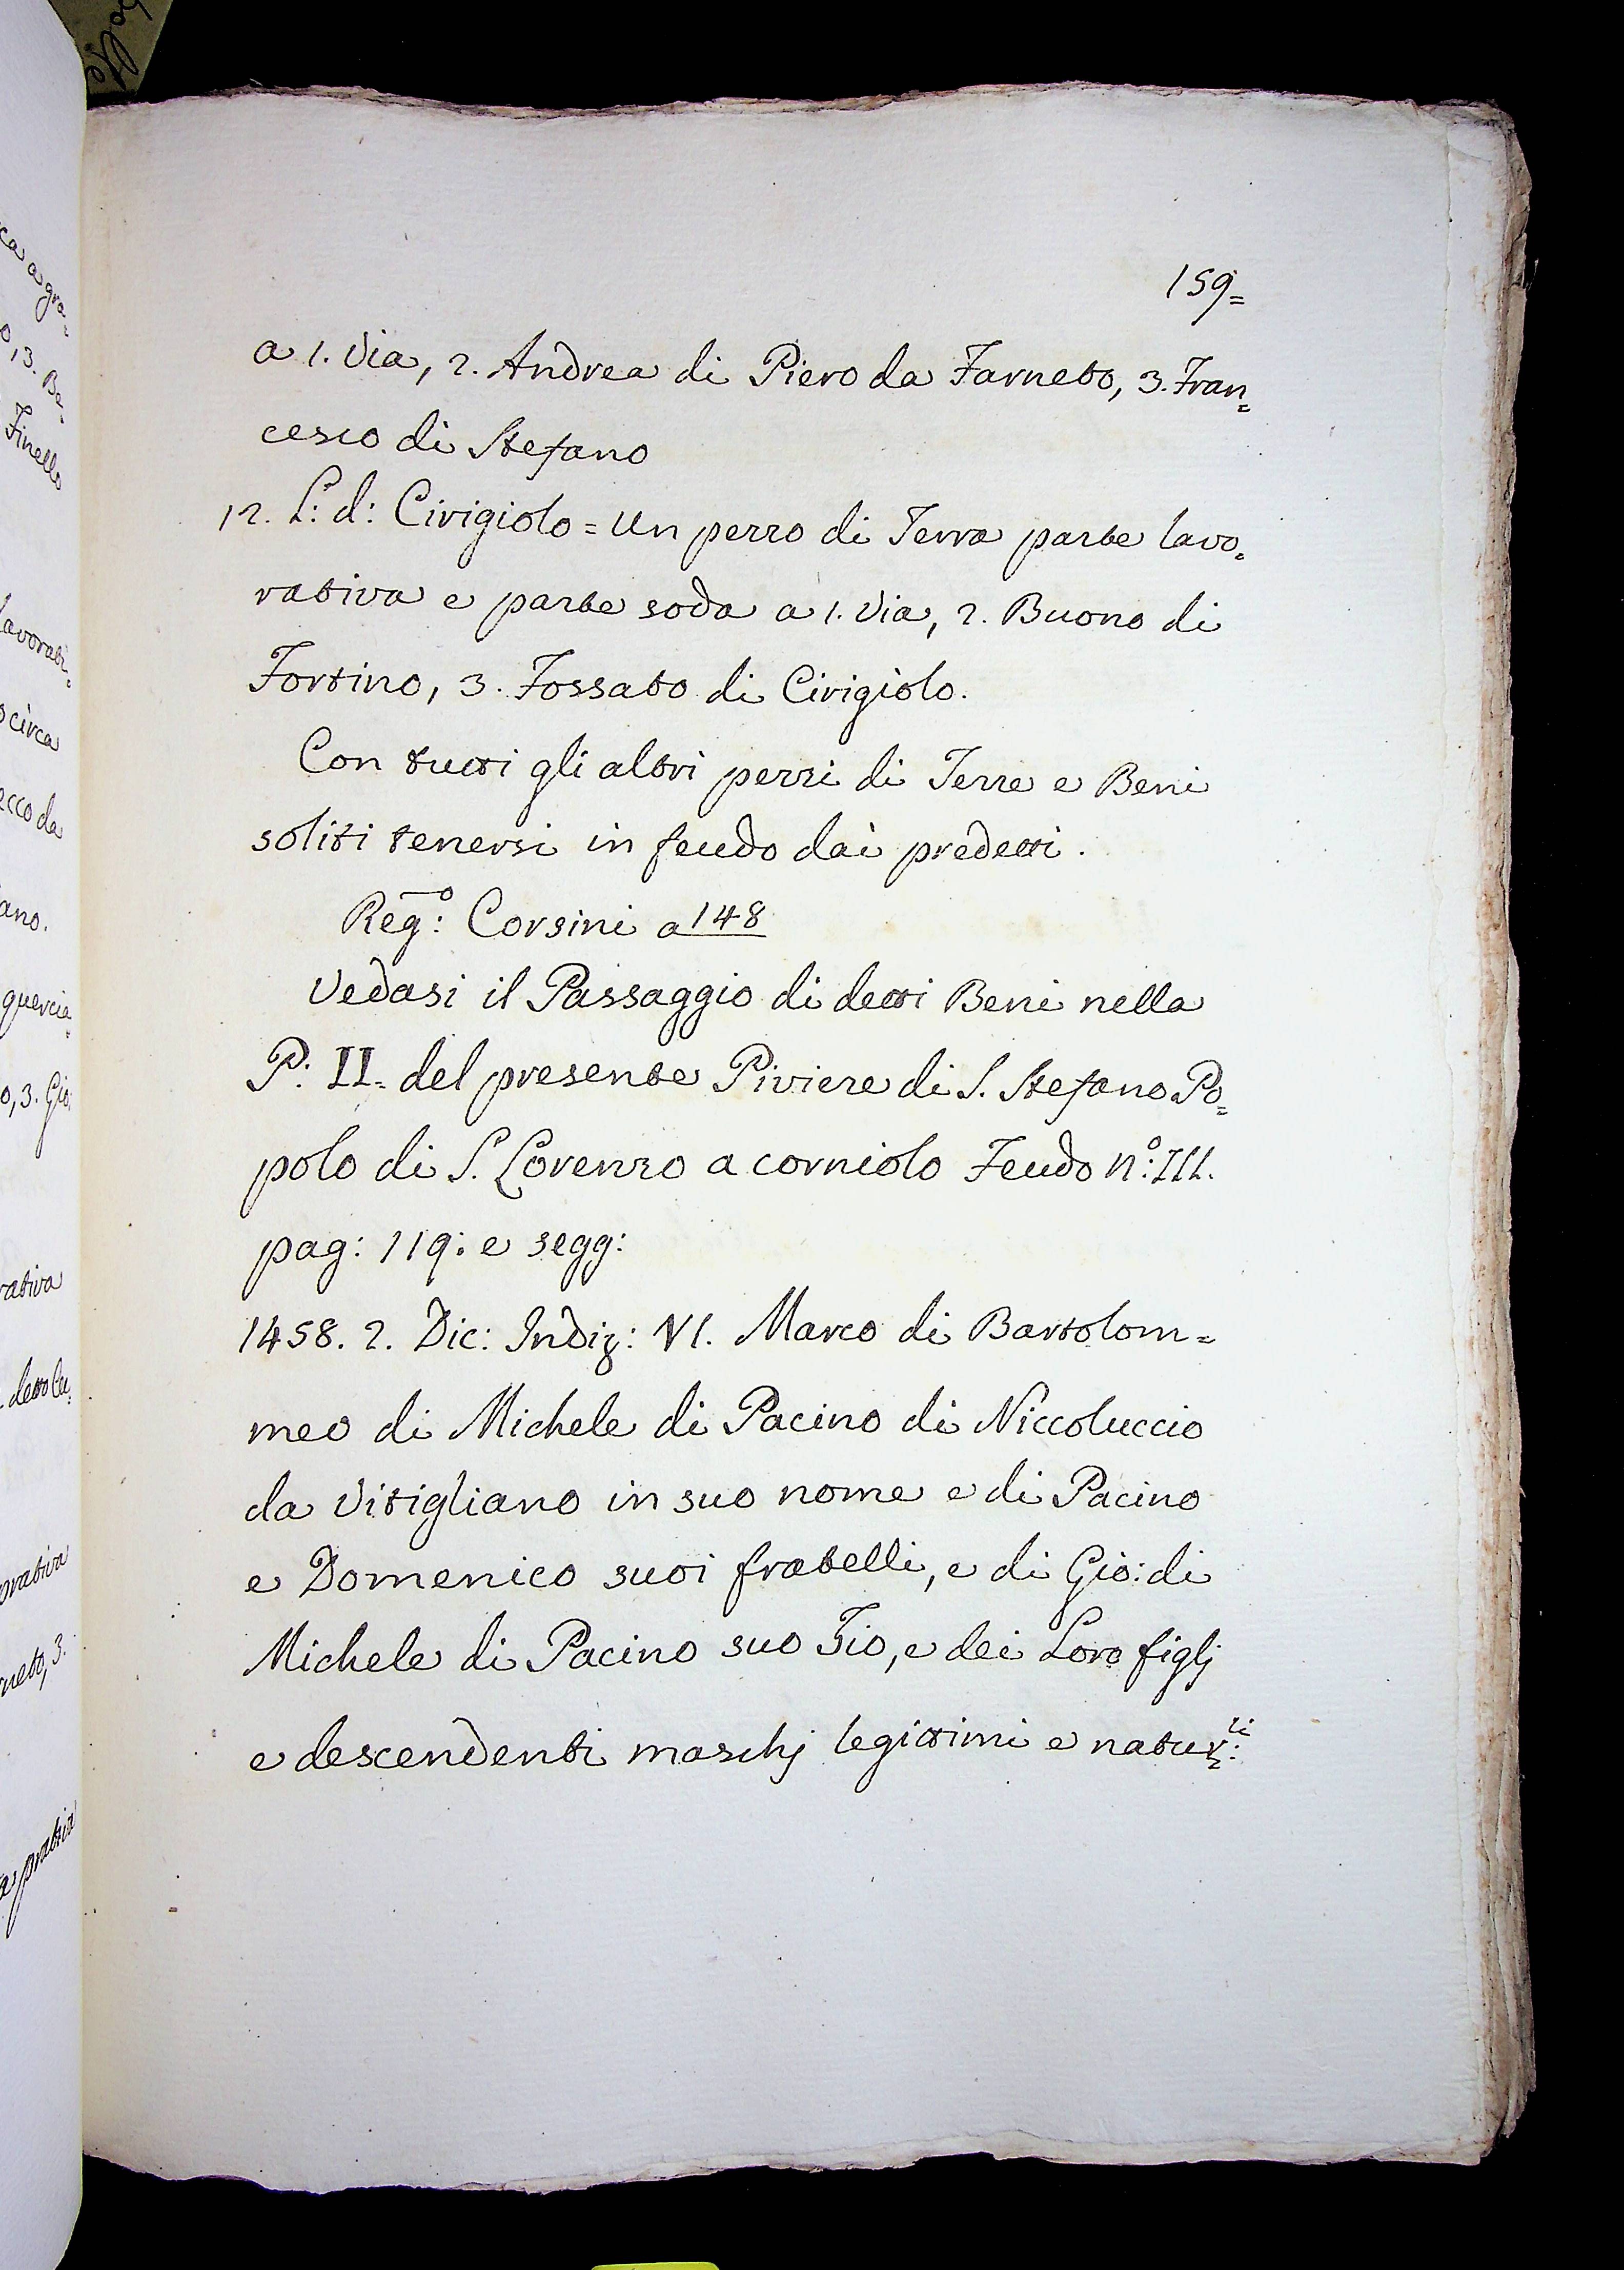 159=
a 1. Via, 2. Andrea di Piero da Farneto, 3. Fran=
cesco di Stefano
12. L: d: Cirigiolo = Un pezzo di Terra parte lavo=
rativa e parte soda a 1. Via, 2. Buono di
Fortino, 3. Fossato di Cirigiolo.
Con tutti gli altri pezzi di Terre e Beni
soliti tenersi in feudo dai predetti.
Reg:º Corsini a 148
Vedasi il Passaggio di detti Beni nella
P: II= del presente Piviere di S. Stefano Po=
polo di S. Lorenzo a corniolo Feudo nº: III.
pag: 119: e segg:
1458. 2. Dic: Indiz: VI. Marco di Bartolom=
meo di Michele di Pacino di Niccoluccio
da Vitigliano in suo nome e di Pacino
e Domenico suoi fratelli, e di Gio: di
Michele di Pacino suo Zio, e dei Loro figlj
e descendenti maschj legittimi e natur:li